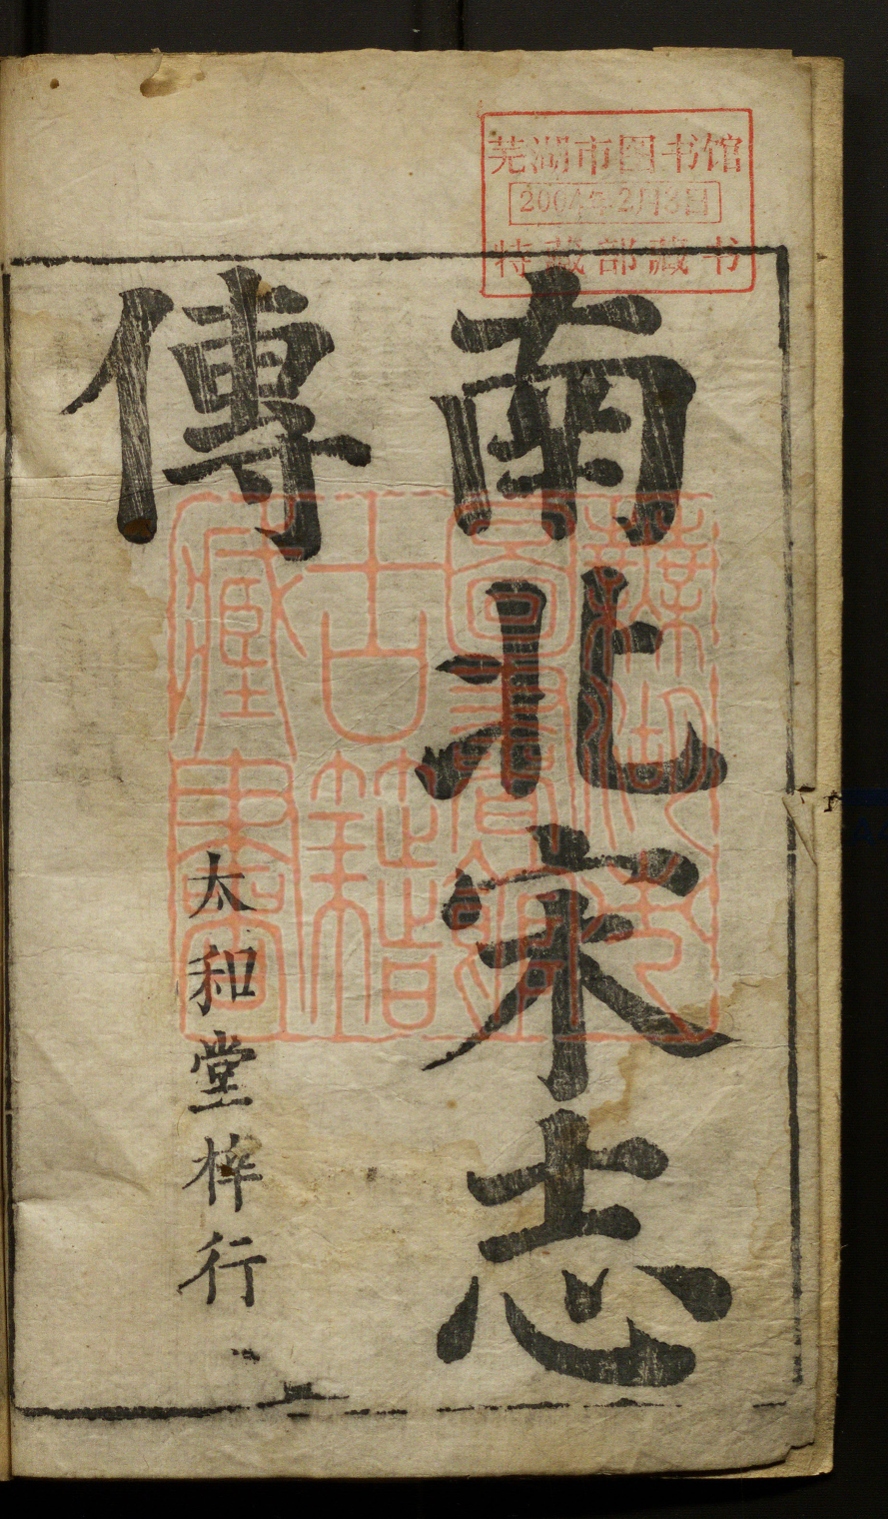 芜湖市图书馆
2004年2月3日
特藏部藏书
南北宋志
傳
太和堂梓行